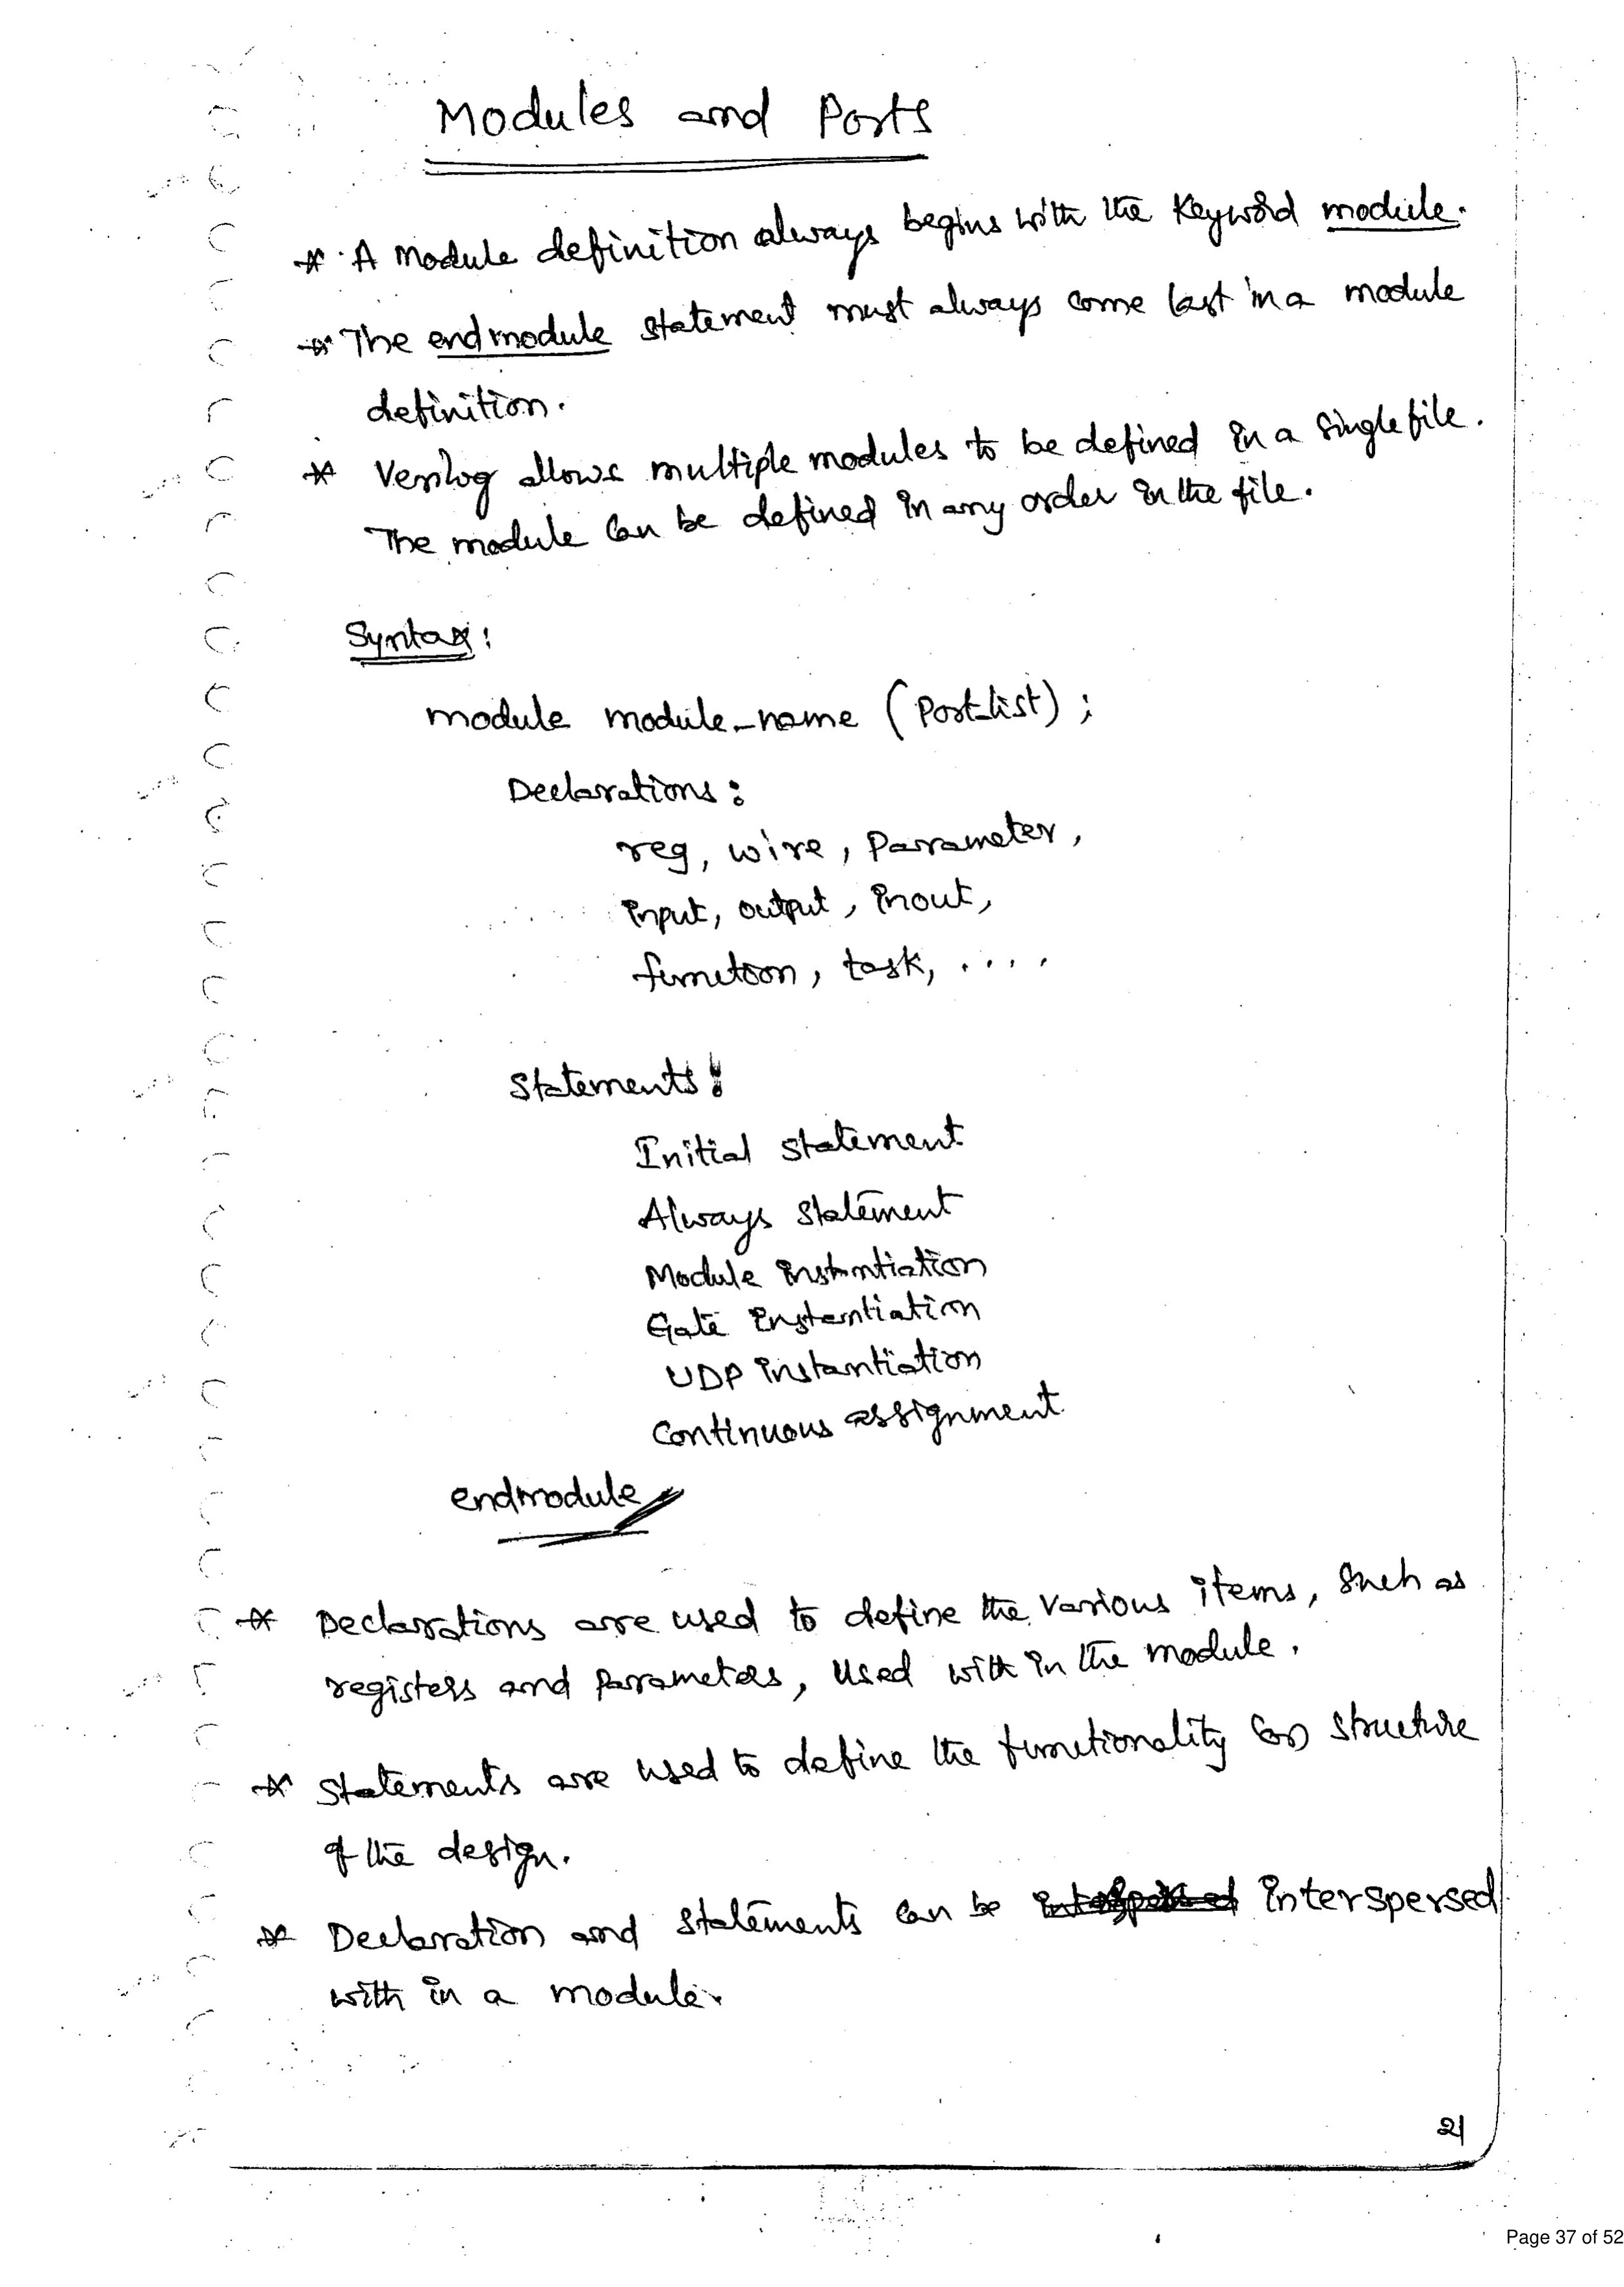 Modules and Ports
* A Module definition always begins with the Keyword module.
* The endmodule statement must always come last in a module
definition.
* Verilog allows multiple modules to be defined in a single file.
The module can be defined in any order in the file.
Syntax:
module module_name (Port_list) ;
Declarations :
reg, wire, Parameter,
input, output, inout,
function, task, ....
Statements :
Initial statement
Always statement
Module instantiation
Gate instantiation
UDP instantiation
Continuous assignment
endmodule
* Declarations are used to define the various items, such as
registers and parameters, used with in the module.
* Statements are used to define the functionality (or) structure
of the design.
* Declaration and statements can be interspersed
with in a module.
21
Page 37 of 52